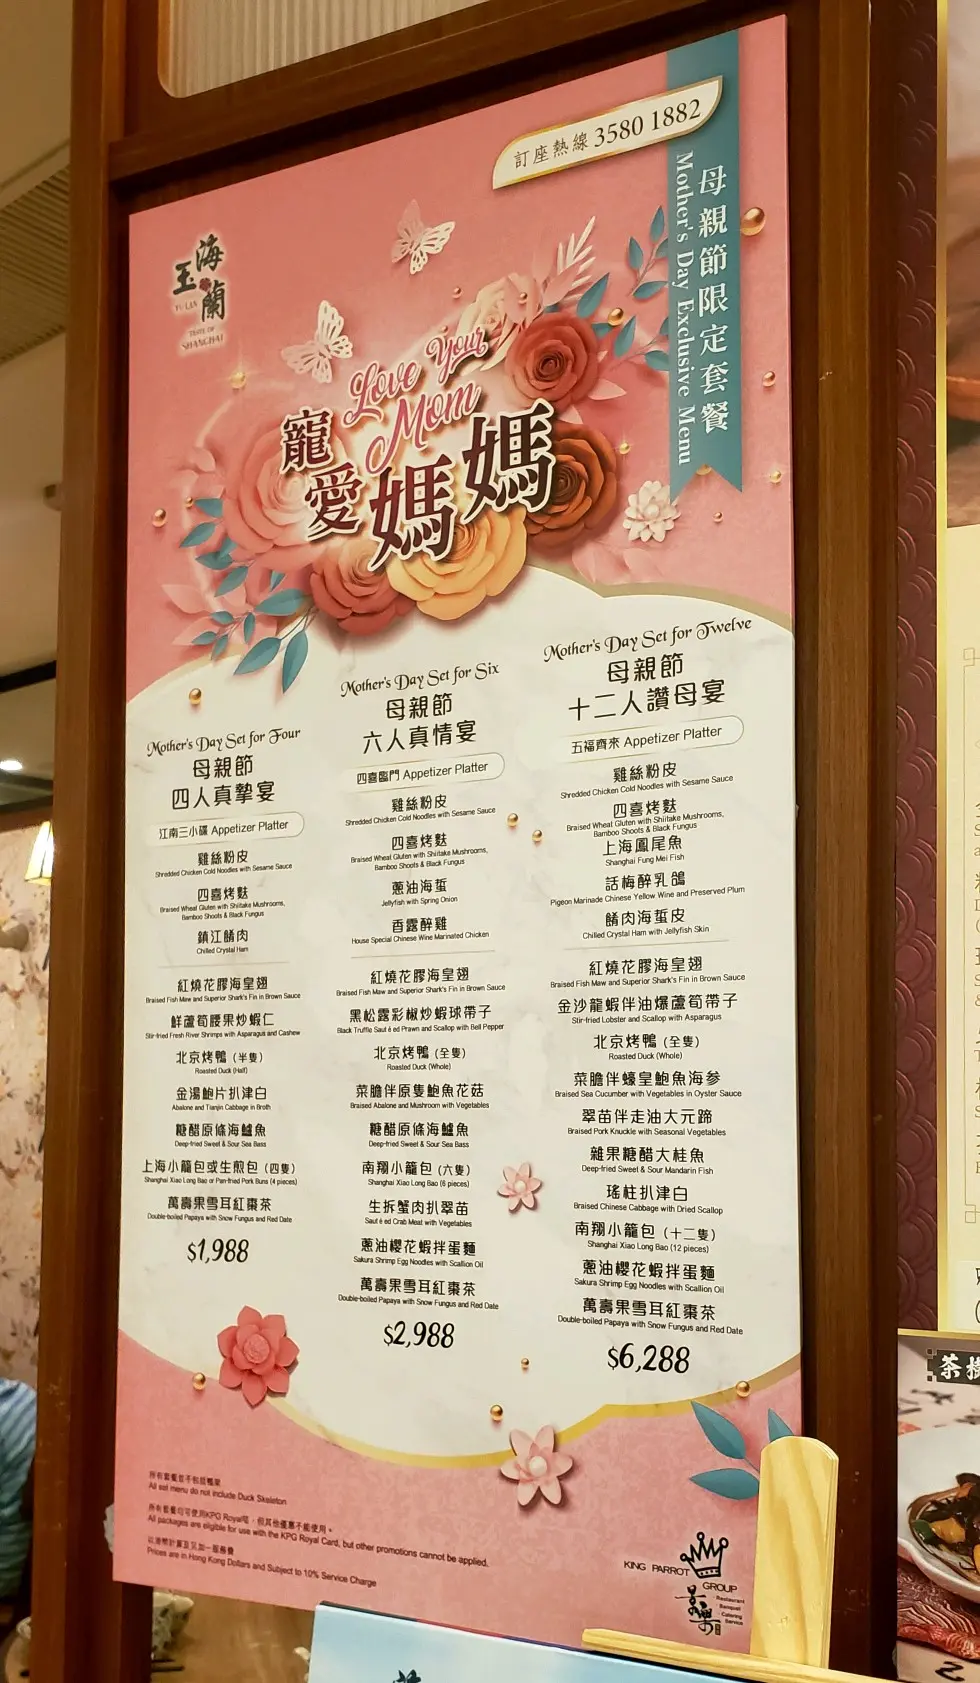 訂座熱線 3580 1882
母親節限定套餐
Mother's Day Exclusive Menu
玉海蘭
YU LAN
TASTE OF
SHANGHAI
Love Your
Mom
寵愛媽媽
Mother's Day Set for Four
母親節
四人真摯宴
江南三小碟 Appetizer Platter
雞絲粉皮
Shredded Chicken Cold Noodles with Sesame Sauce
四喜烤麩
Braised Wheat Gluten with Shiitake Mushrooms,
Bamboo Shoots & Black Fungus
鎮江餚肉
Chilled Crystal Ham
紅燒花膠海皇翅
Braised Fish Maw and Superior Shark's Fin in Brown Sauce
鮮蘆筍腰果炒蝦仁
Stir-fried Fresh River Shrimps with Asparagus and Cashew
北京烤鴨 (半隻)
Roasted Duck (Half)
金湯鮑片扒津白
Abalone and Tianjin Cabbage in Broth
糖醋原條海鱸魚
Deep-fried Sweet & Sour Sea Bass
上海小籠包或生煎包 (四隻)
Shanghai Xiao Long Bao or Pan-fried Pork Buns (4 pieces)
萬壽果雪耳紅棗茶
Double-boiled Papaya with Snow Fungus and Red Date
$1,988
Mother's Day Set for Six
母親節
六人真情宴
四喜臨門 Appetizer Platter
雞絲粉皮
Shredded Chicken Cold Noodles with Sesame Sauce
四喜烤麩
Braised Wheat Gluten with Shiitake Mushrooms,
Bamboo Shoots & Black Fungus
蔥油海蜇
Jellyfish with Spring Onion
香露醉雞
House Special Chinese Wine Marinated Chicken
紅燒花膠海皇翅
Braised Fish Maw and Superior Shark's Fin in Brown Sauce
黑松露彩椒炒蝦球帶子
Black Truffle Sauté ed Prawn and Scallop with Bell Pepper
北京烤鴨 (全隻)
Roasted Duck (Whole)
菜膽伴原隻鮑魚花菇
Braised Abalone and Mushroom with Vegetables
糖醋原條海鱸魚
Deep-fried Sweet & Sour Sea Bass
南翔小籠包 (六隻)
Shanghai Xiao Long Bao (6 pieces)
生拆蟹肉扒翠苗
Sauté ed Crab Meat with Vegetables
蔥油櫻花蝦拌蛋麵
Sakura Shrimp Egg Noodles with Scallion Oil
萬壽果雪耳紅棗茶
Double-boiled Papaya with Snow Fungus and Red Date
$2,988
Mother's Day Set for Twelve
母親節
十二人讚母宴
五福齊來 Appetizer Platter
雞絲粉皮
Shredded Chicken Cold Noodles with Sesame Sauce
四喜烤麩
Braised Wheat Gluten with Shiitake Mushrooms,
Bamboo Shoots & Black Fungus
上海鳳尾魚
Shanghai Fung Mei Fish
話梅醉乳鴿
Pigeon Marinade Chinese Yellow Wine and Preserved Plum
餚肉海蜇皮
Chilled Crystal Ham with Jellyfish Skin
紅燒花膠海皇翅
Braised Fish Maw and Superior Shark's Fin in Brown Sauce
金沙龍蝦伴油爆蘆筍帶子
Stir-fried Lobster and Scallop with Asparagus
北京烤鴨 (全隻)
Roasted Duck (Whole)
菜膽伴蠔皇鮑魚海參
Braised Sea Cucumber with Vegetables in Oyster Sauce
翠苗伴走油大元蹄
Braised Pork Knuckle with Seasonal Vegetables
雜果糖醋大桂魚
Deep-fried Sweet & Sour Mandarin Fish
瑤柱扒津白
Braised Chinese Cabbage with Dried Scallop
南翔小籠包 (十二隻)
Shanghai Xiao Long Bao (12 pieces)
蔥油櫻花蝦拌蛋麵
Sakura Shrimp Egg Noodles with Scallion Oil
萬壽果雪耳紅棗茶
Double-boiled Papaya with Snow Fungus and Red Date
$6,288
所有套餐並不包括鴨架
All set menu do not include Duck Skeleton
所有套餐均可使用KPG Royal咭，但其他優惠不能使用。
All packages are eligible for use with the KPG Royal Card, but other promotions cannot be applied.
以港幣計算及另加一服務費
Prices are in Hong Kong Dollars and Subject to 10% Service Charge
KING PARROT GROUP
景樂
Restaurant
Banquet
Catering
Service
茶